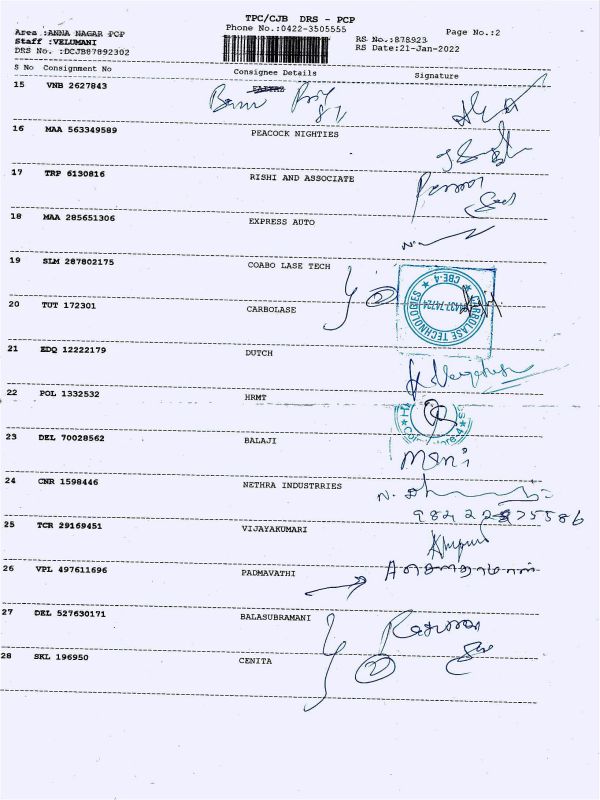 TPC/CJB DRS - PCP
Phone No.:0422-3505555
Area :ANNA NAGAR PCP
Page No.:2
Staff :VELUMANI
RS No.:878923
DRS No. :DCJB87892302
RS Date:21-Jan-2022
S No Consignment No Consignee Details Signature
15 VNB 2627843
16 MAA 563349589 PEACOCK NIGHTIES
17 TRP 6130816 RISHI AND ASSOCIATE
18 MAA 285651306 EXPRESS AUTO
19 SLM 287802175 COABO LASE TECH
2
CARBOLASE TECHNOLOGIES ★ CBE-4. ★
20 TUT 172301 CARBOLASE
21 EDQ 12222179 DUTCH
22 POL 1332532 HRMT
23 DEL 70028562 BALAJI
Mani
24 CNR 1598446 NETHRA INDUSTRRIES
25 TCR 29169451 VIJAYAKUMARI
26 VPL 497611696 PADMAVATHI
27 DEL 527630171 BALASUBRAMANI
28 SKL 196950 CENITA
2